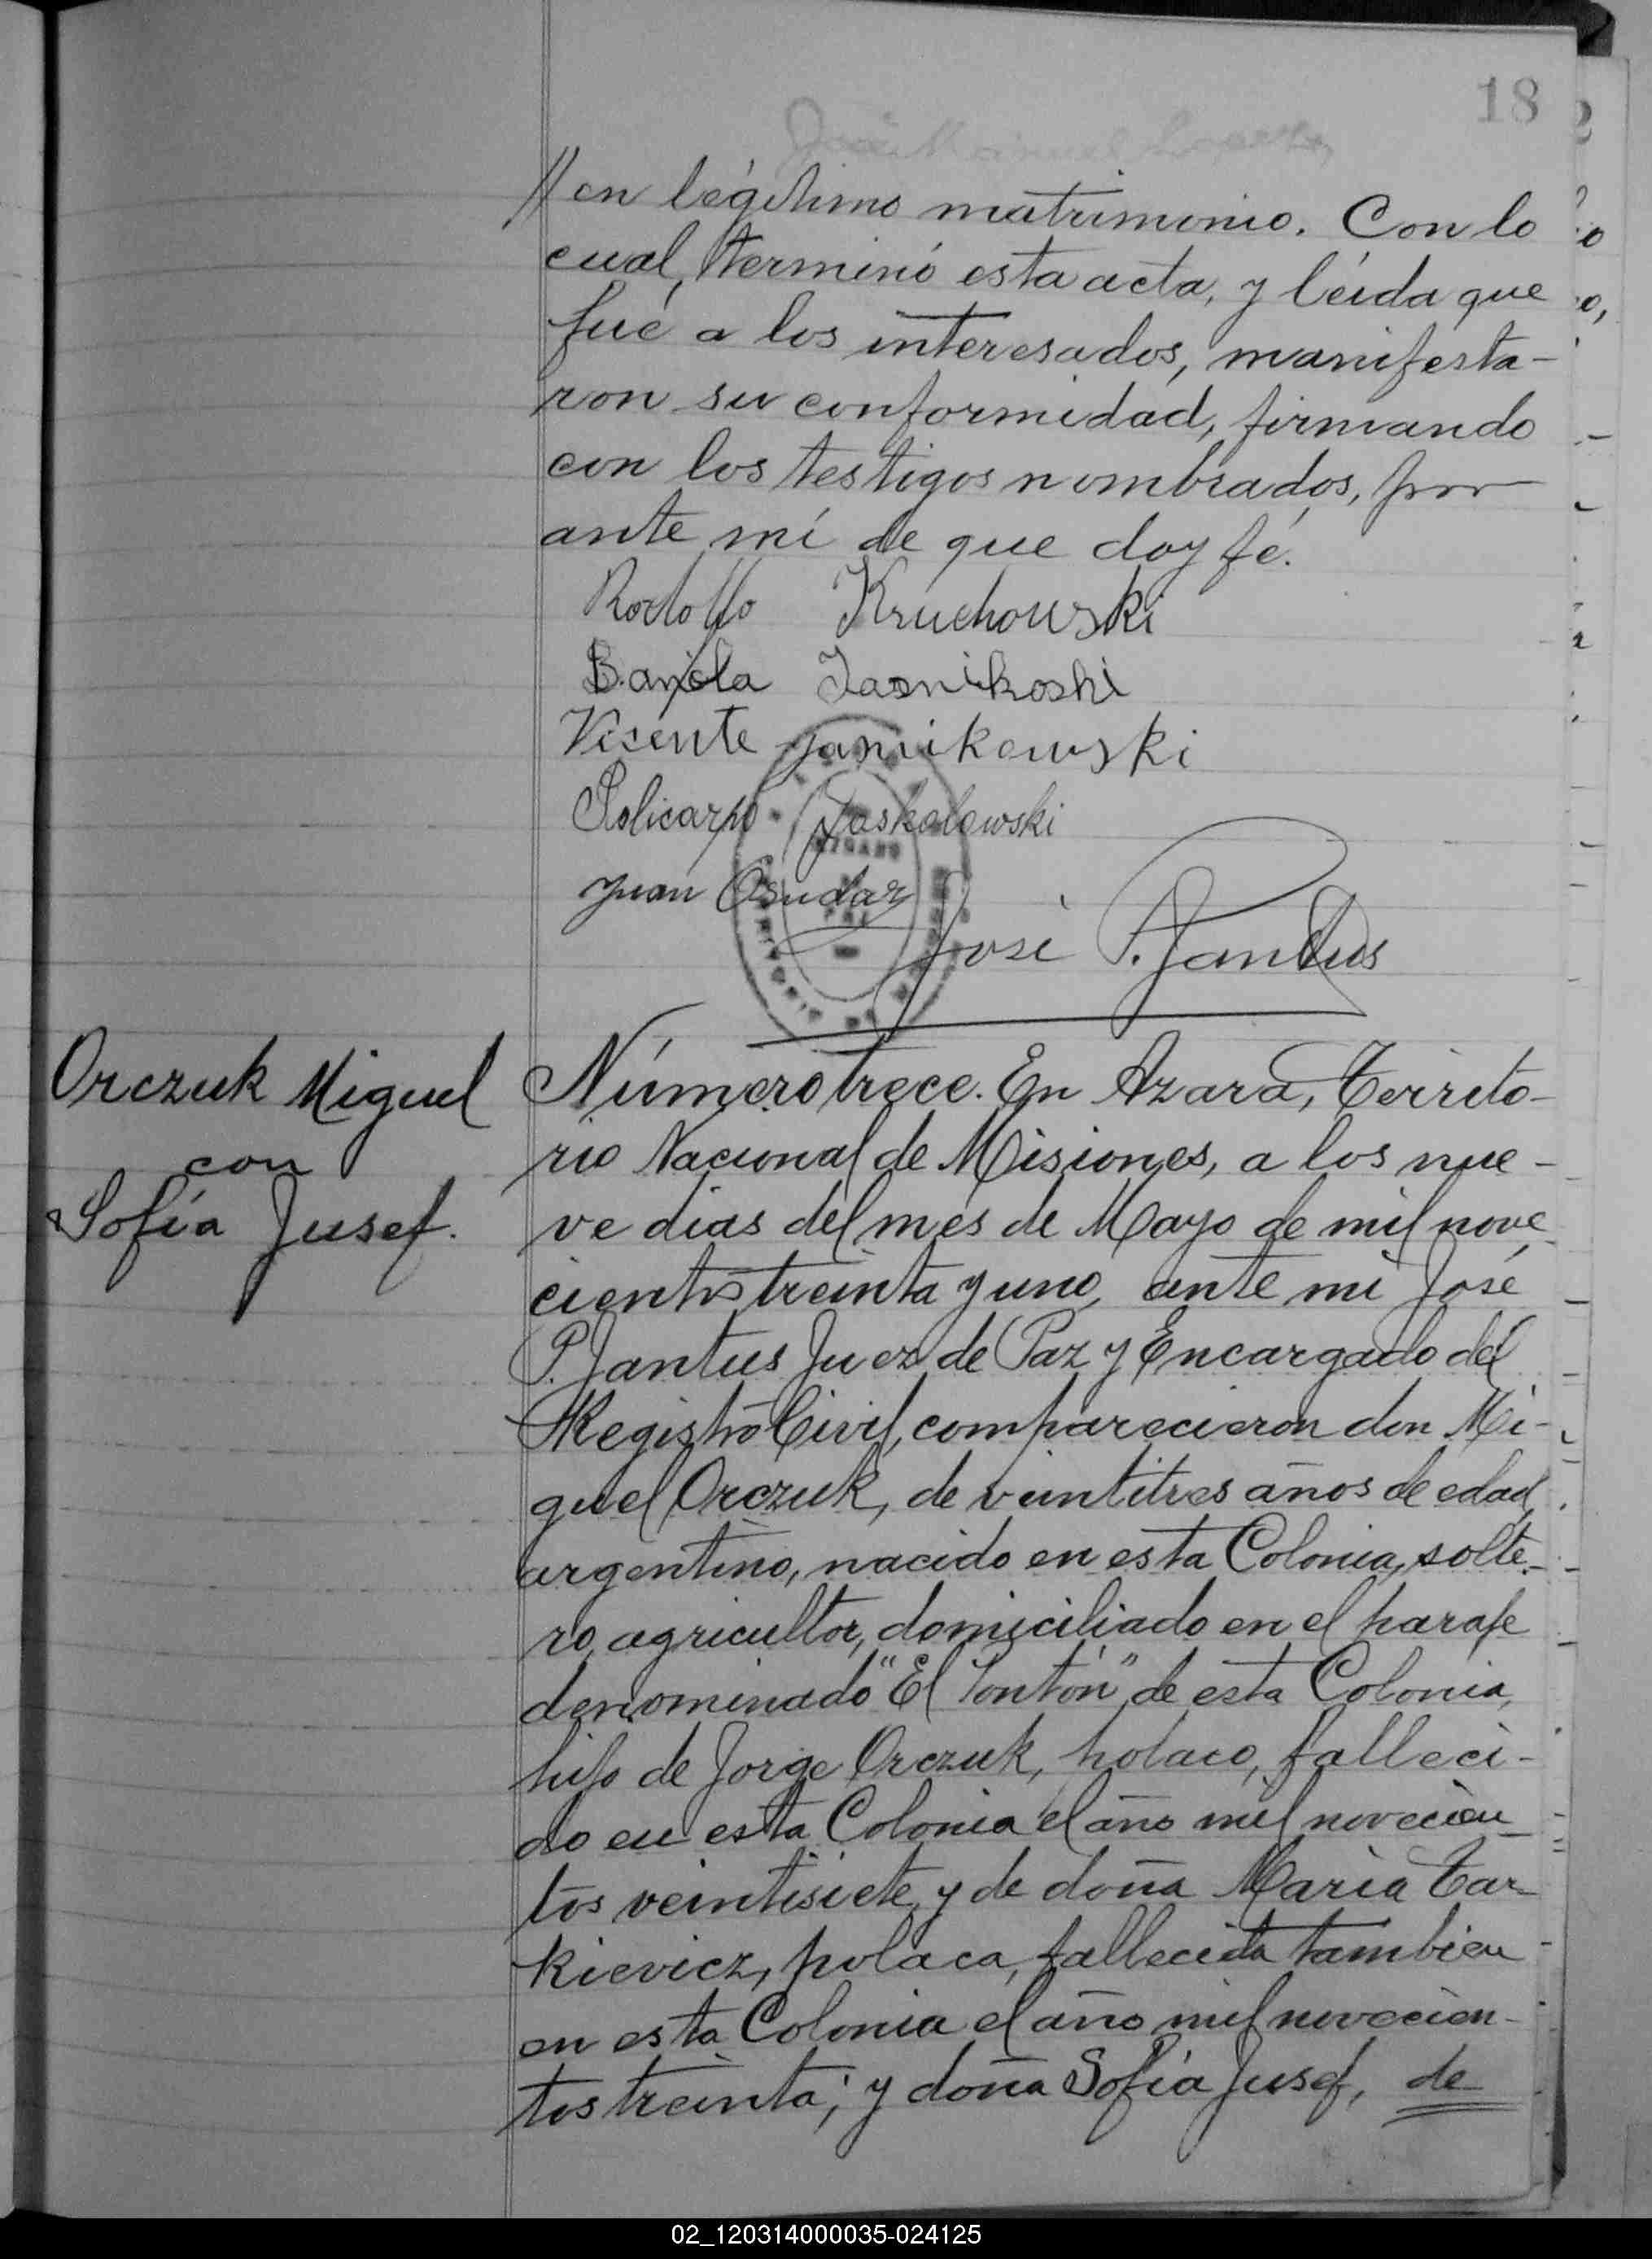 18
// en légitimo matrimonio. Con lo
cual, terminó esta acta, y leída que
fué a los interesados, manifesta-
ron su conformidad, firmando
con los testigos nombrados, por
ante mí de que doy fé.
Rodolfo Kruchowski
Vicente Janikowski
Policarpo
Juan
José P. Jantus
Orczuk Miguel
con
Sofía Jusef.
Número trece. En Azara, Territo-
rio Nacional de Misiones, a los nue-
ve dias del mes de Mayo de mil nove
cientos treinta y uno, ante mi José
P. Jantus Juez de Paz y Encargado del
Registro Civil, comparecieron don Mi-
guel Orczuk, de veintitres años de edad,
argentino, nacido en esta Colonia, solte-
ro, agricultor, domiciliado en el paraje
denominado "El Pontón" de esta Colonia,
hijo de Jorge Orczuk, polaco, falleci-
do en esta Colonia el año mil novecien
tos veintisiete y de doña Maria Tar-
kievicz, polaca, fallecida tambien
en esta Colonia el año mil novecien-
tos treinta; y doña Sofía Jusef, de
02_120314000035-024125